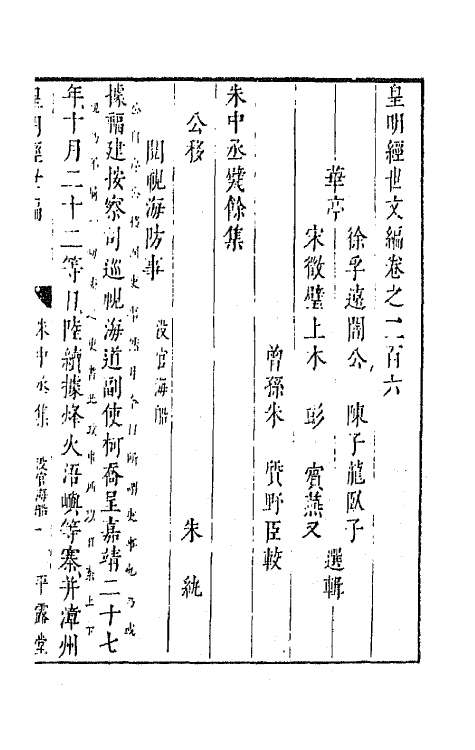 皇明經世文編卷之二百六
華亭
徐孚遠闇公　陳子龍臥子
宋徵璧上木　彭　賓燕又
選輯
曾孫朱　質野臣較
朱中丞甓餘集
公移
朱紈
閱視海防事
没官海船
據福建按察司巡視海道副使柯喬呈嘉靖二十七
年十月二十二等日陸續據烽火浯嶼等寨并漳州
皇明經世文編
朱中丞集
没官海船一
平露堂